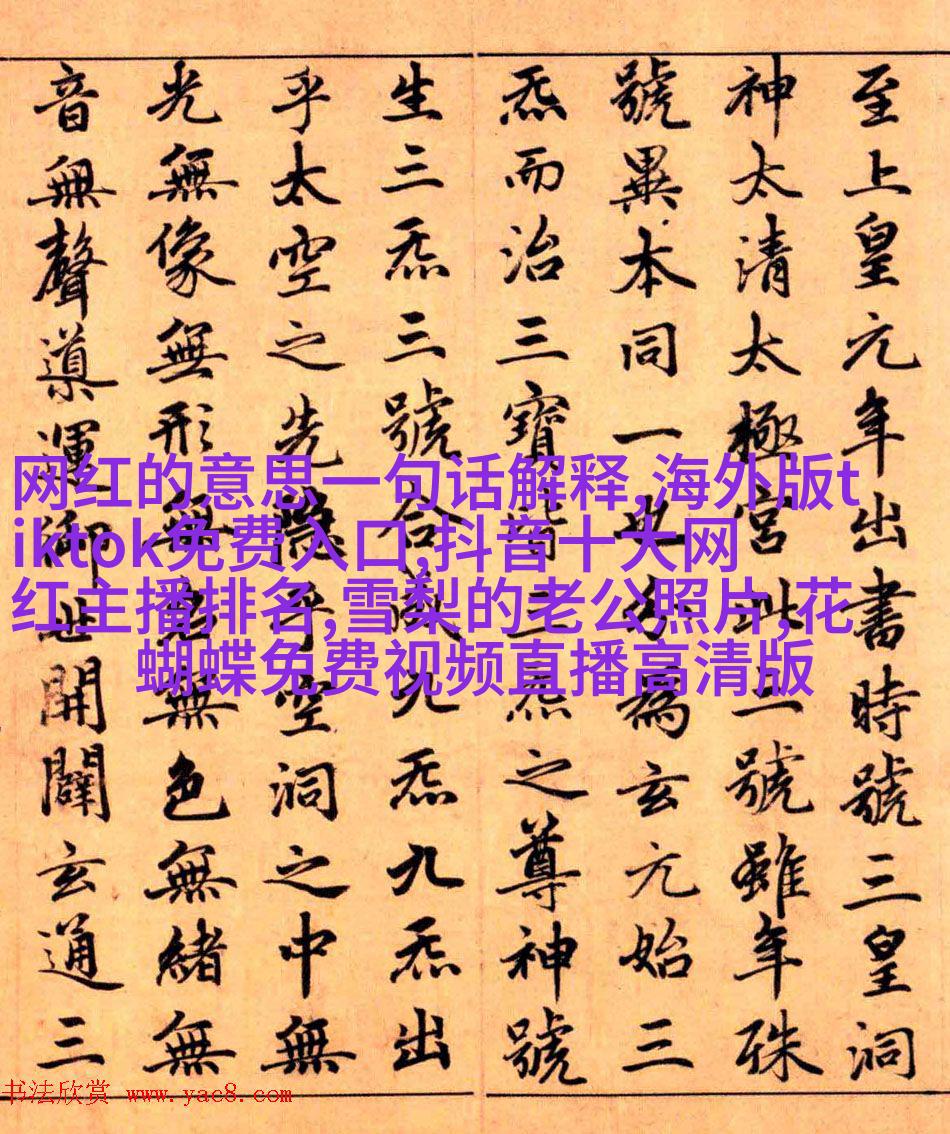 至上皇元年出書時號三皇洞
神太清太極宮此三號雖年殊
號異本同一也分為玄元始三
炁而治三寶皆三炁之尊神號
生三炁三號合成九炁九炁出
乎太空之先隱乎空洞之中無
光無像無形無名無色無緒無
音無聲導運御世開闢玄通三
网红的意思一句话解释,海外版t
iktok免费入口,抖音十大网
红主播排名,雪梨的老公照片,花
蝴蝶免费视频直播高清版
书法欣赏 www.yac8.com